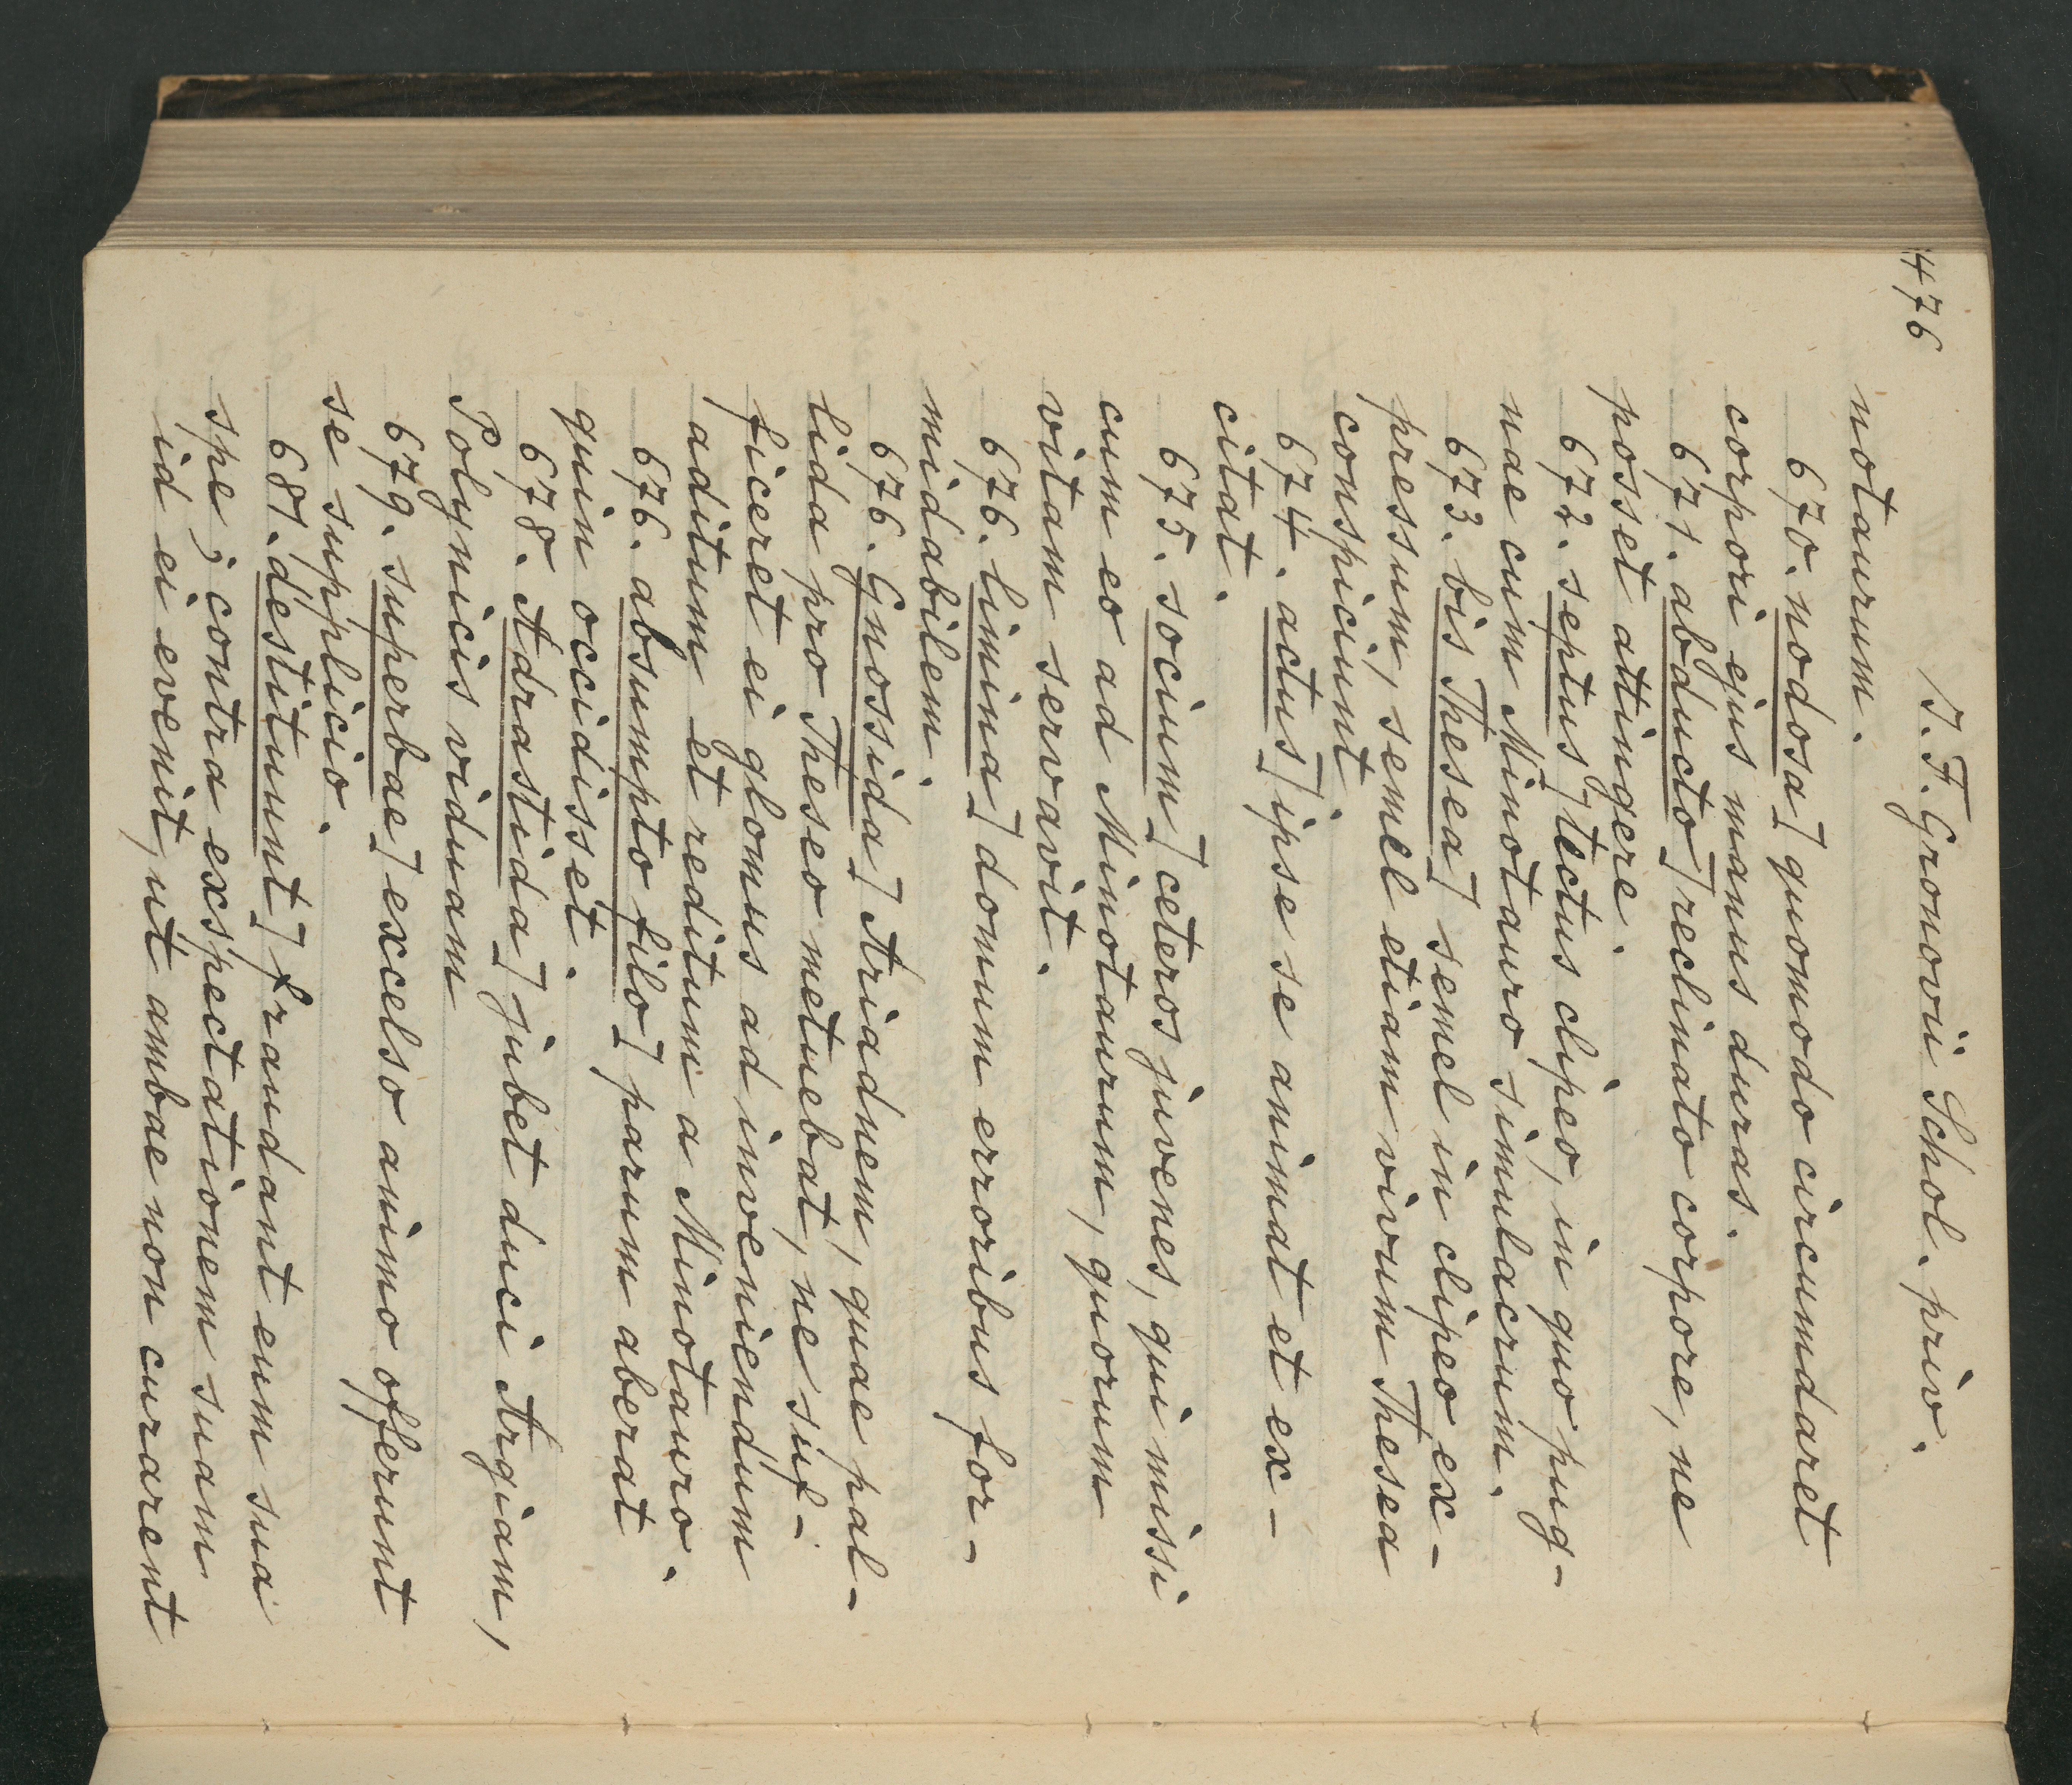 476
J. F. Gronovii Schol. priv.
notaurum.
670. nodosa] quomodo circumdaret
corpori ejus manus duras.
671. abducto] reclinato corpore, ne
posset attingere.
672. septus] tectus clipeo, in quo pug-
nae cum Minotauro simulacrum.
673. bis Thesea] semel in clipeo ex-
pressum, semel etiam vivum Thesea
conspiciunt.
674. actus] ipse se animat et ex-
citat.
675. socium] ceteros juvenes, qui missi
cum eo ad Minotaurum, quorum
vitam servavit.
676. limina] domum erroribus for-
midabilem.
676. Gnossida] Ariadnem, quae pal-
lida pro Theseo metuebat, ne suf-
ficeret ei glomus ad inveniendum
aditum et reditum a Minotauro.
676. absumpto filo] parum aberat
quin occidisset.
678. Adrastida] jubet duci Argiam,
Polynicis viduam
679. superbae] excelso animo offerunt
se supplicio.
681. destituunt] fraudant eum sua
spe; contra exspectationem suam
id ei evenit, ut ambae non curarent